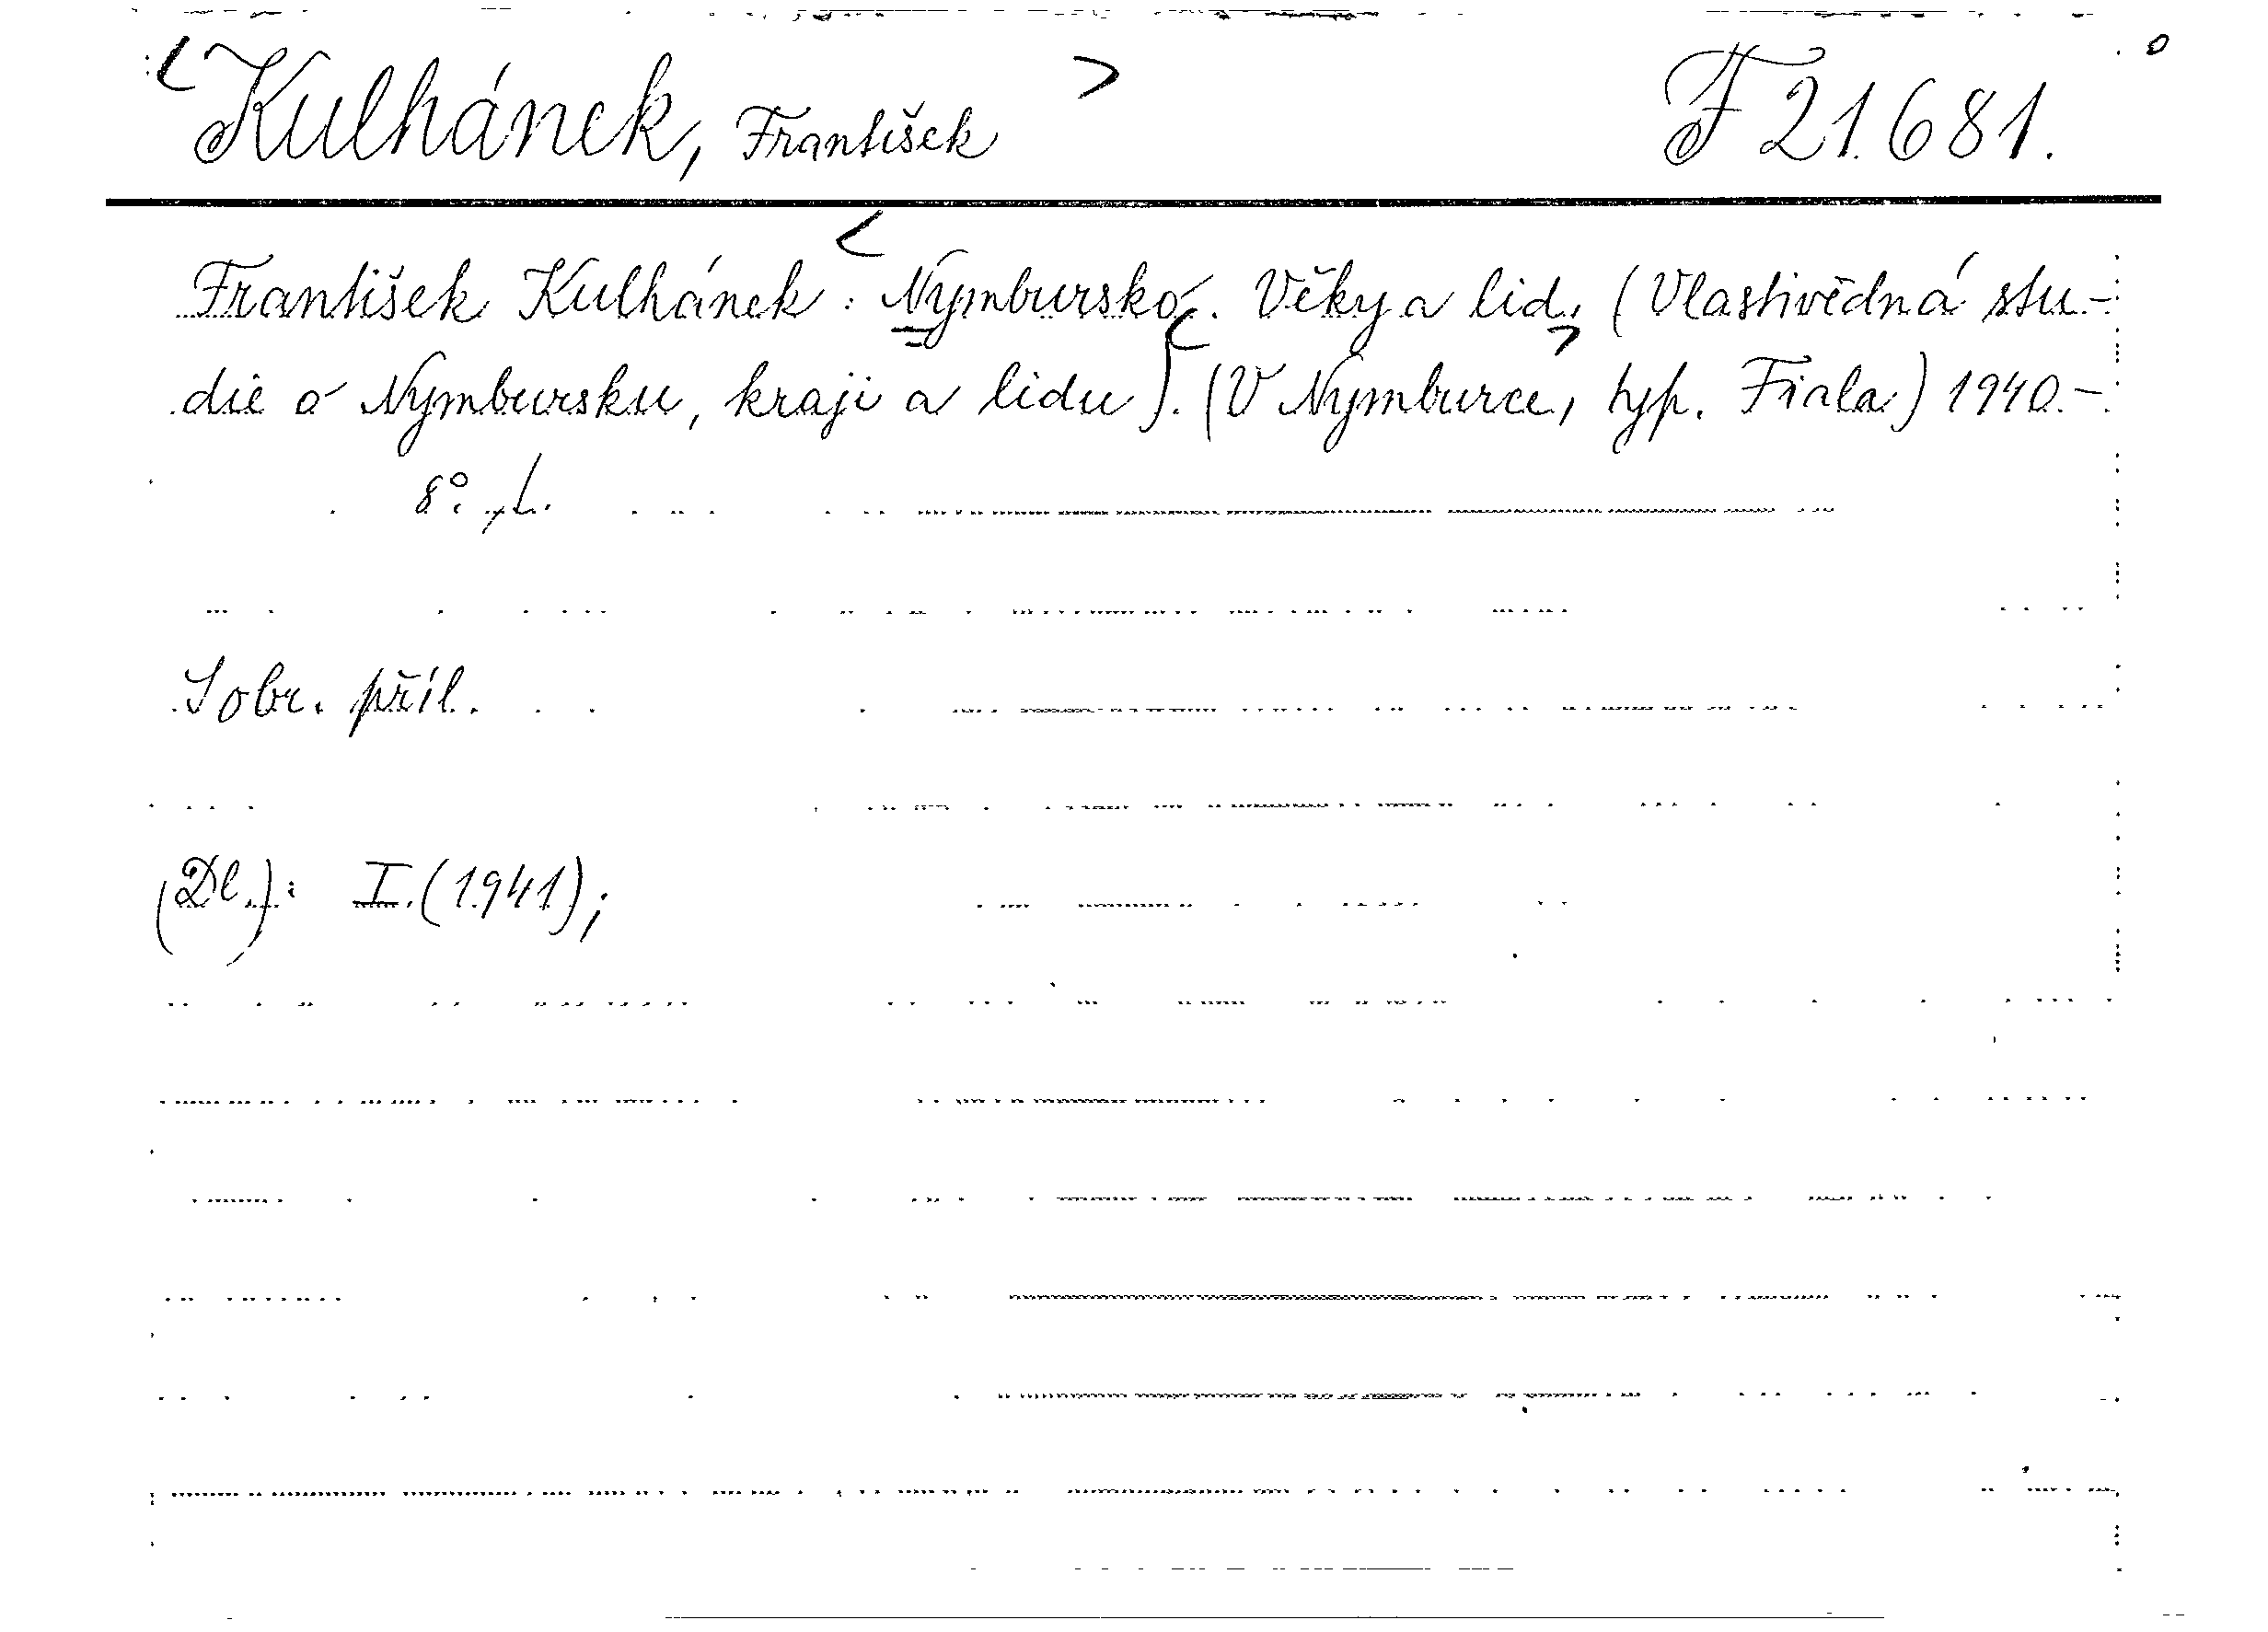 Kulhánek, František F 21.681.
František Kulhánek: Nymbursko. Věky a lid. (Vlastivědná stu-
die o Nymbursku, kraji a lidu). (V Nymburce, typ. Fiala) 1940.-
8°.
S obr. příl.
(Dl.): I. (1941);